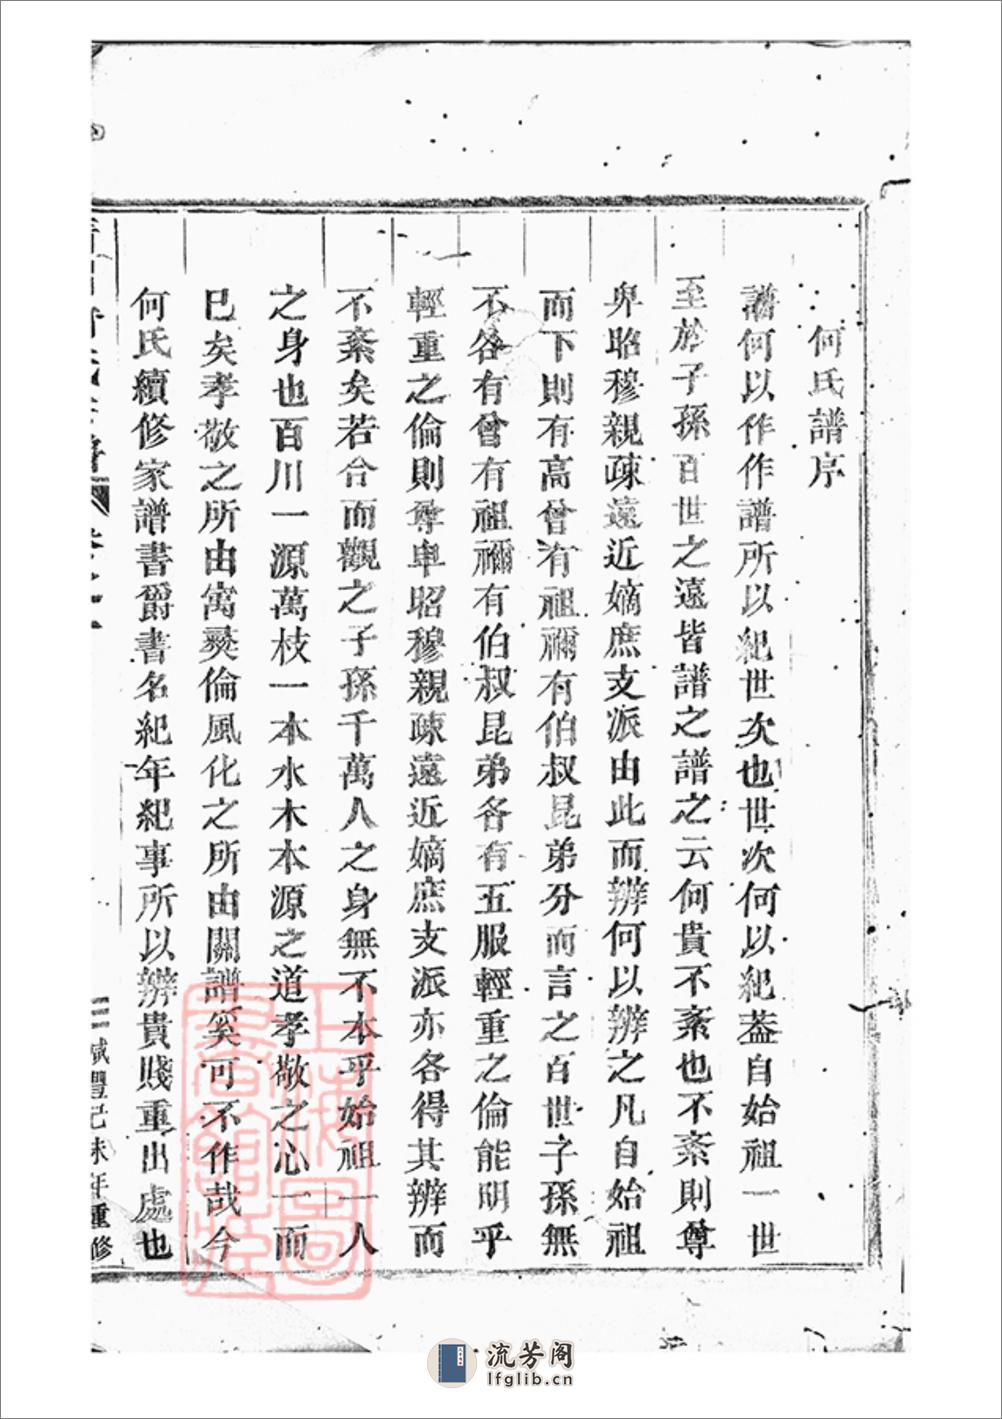 何氏譜序
譜何以作作譜所以紀世次也世次何以紀葢自始祖一世
至於子孫百世之遠皆譜之譜之云何貴不紊也不紊則尊
卑昭穆親疎遠近嫡庶支派由此而辨何以辨之凡自始祖
而下則有高曾有祖禰有伯叔昆弟分而言之百世子孫無
不各有曾有祖禰有伯叔昆弟各有五服輕重之倫能明乎
輕重之倫則尊卑昭穆親疎遠近嫡庶支派亦各得其辨而
不紊矣若合而觀之子孫千萬人之身無不本乎始祖一人
之身也百川一源萬枝一本水木本源之道孝敬之心一而
已矣孝敬之所由寓彛倫風化之所由關譜奚可不作哉今
何氏續修家譜書爵書名紀年紀事所以辨貴賤重出處也
咸豐己未年重修
上海圖書館藏
流芳阁
lfglib.cn